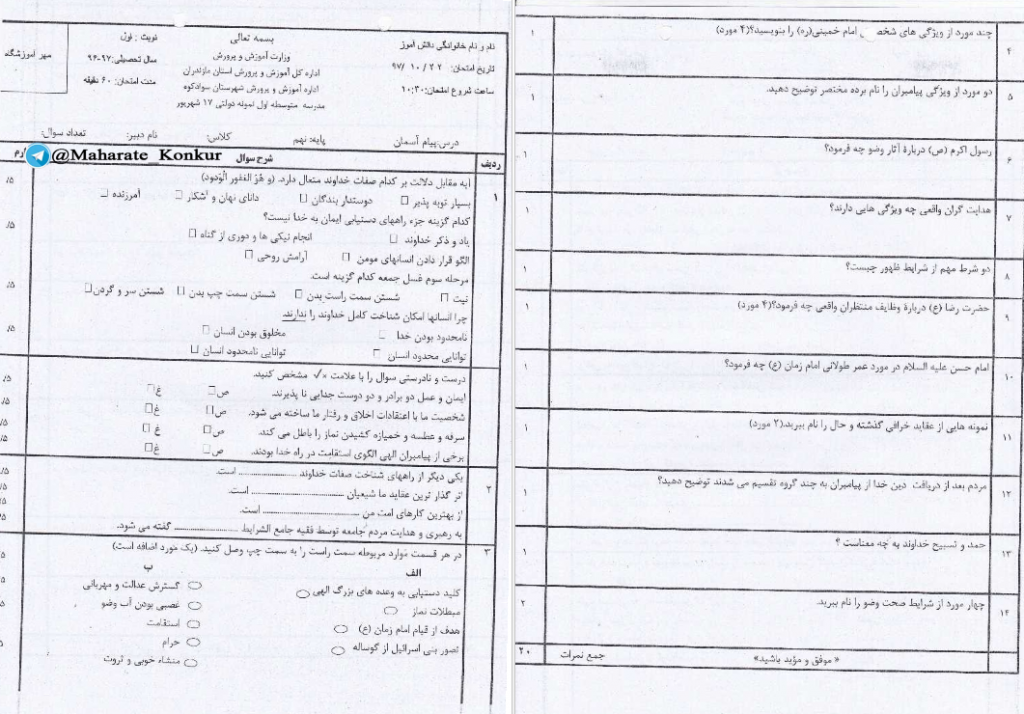 بسمه تعالی
نام و نام خانوادگی دانش آموز
وزارت آموزش و پرورش
نوبت : اول
تاریخ امتحان: ۲۲ / ۱۰ / ۹۷
اداره کل آموزش و پرورش استان مازندران
سال تحصیلی: ۹۷-۹۶
مهر آموزشگاه
ساعت شروع امتحان: ۱۰:۳۰
اداره آموزش و پرورش شهرستان سوادکوه
مدت امتحان: ۶۰ دقیقه
مدرسه متوسطه اول نمونه دولتی ۱۷ شهریور
درس:پیام آسمان پایه: نهم کلاس: نام دبیر: تعداد سوال:
@Maharate_Konkur
ردیف شرح سوال
۱ آیه مقابل دلالت بر کدام صفات خداوند متعال دارد. (و هُوَ الغفور الْوَدود) /۵
بسیار توبه پذیر □ دوستدار بندگان □ دانای نهان و آشکار □ آمرزنده □
کدام گزینه جزء راههای دستیابی ایمان به خدا نیست؟ /۵
یاد و ذکر خداوند □ انجام نیکی ها و دوری از گناه □
الگو قرار دادن انسانهای مومن □ آرامش روحی □
مرحله سوم غسل جمعه کدام گزینه است. /۵
نیت □ شستن سمت راست بدن □ شستن سمت چپ بدن □ شستن سر و گردن □
چرا انسانها امکان شناخت کامل خداوند را ندارند. /۵
نامحدود بودن خدا □ مخلوق بودن انسان □
توانایی محدود انسان □ توانایی نامحدود انسان □
درست و نادرستی سوال را با علامت ×√ مشخص کنید. /۵
ایمان و عمل دو برادر و دو دوست جدایی نا پذیرند. ص □ غ □
شخصیت ما با اعتقادات اخلاق و رفتار ما ساخته می شود. ص □ غ □ /۵
سرفه و عطسه و خمیازه کشیدن نماز را باطل می کند. ص □ غ □ /۵
برخی از پیامبران الهی الگوی استقامت در راه خدا بودند. ص □ غ □ /۵
۲ یکی دیگر از راههای شناخت صفات خداوند .................... است. /۵
اثر گذار ترین عقاید ما شیعیان .................... است.
از بهترین کارهای امت من .................... است.
به رهبری و هدایت مردم جامعه توسط فقیه جامع الشرایط .................... گفته می شود.
۳ در هر قسمت موارد مربوطه سمت راست را به سمت چپ وصل کنید. (یک مورد اضافه است)
الف ب
کلید دستیابی به وعده های بزرگ الهی گسترش عدالت و مهربانی
مبطلات نماز غصبی بودن آب وضو
هدف از قیام امام زمان (ع) استقامت
تصور بنی اسرائیل از گوساله حرام
منشاء خوبی و ثروت
۴ چند مورد از ویژگی های شخصی امام خمینی(ره) را بنویسید؟(۴ مورد) ۱
۵ دو مورد از ویژگی پیامبران را نام برده مختصر توضیح دهید. ۱
۶ رسول اکرم (ص) دربارهٔ آثار وضو چه فرمود؟ ۱
۷ هدایت گران واقعی چه ویژگی هایی دارند؟ ۱
۸ دو شرط مهم از شرایط ظهور چیست؟ ۱
۹ حضرت رضا (ع) دربارهٔ وظایف منتظران واقعی چه فرمود؟(۴ مورد) ۱
۱۰ امام حسن علیه السلام در مورد عمر طولانی امام زمان (ع) چه فرمود؟ ۱
۱۱ نمونه هایی از عقاید خرافی گذشته و حال را نام ببرید.(۲ مورد) ۱
۱۲ مردم بعد از دریافت دین خدا از پیامبران به چند گروه تقسیم می شدند توضیح دهید؟ ۱
۱۳ حمد و تسبیح خداوند به چه معناست ؟ ۱
۱۴ چهار مورد از شرایط صحت وضو را نام ببرید. ۲
« موفق و مؤید باشید» جمع نمرات ۲۰